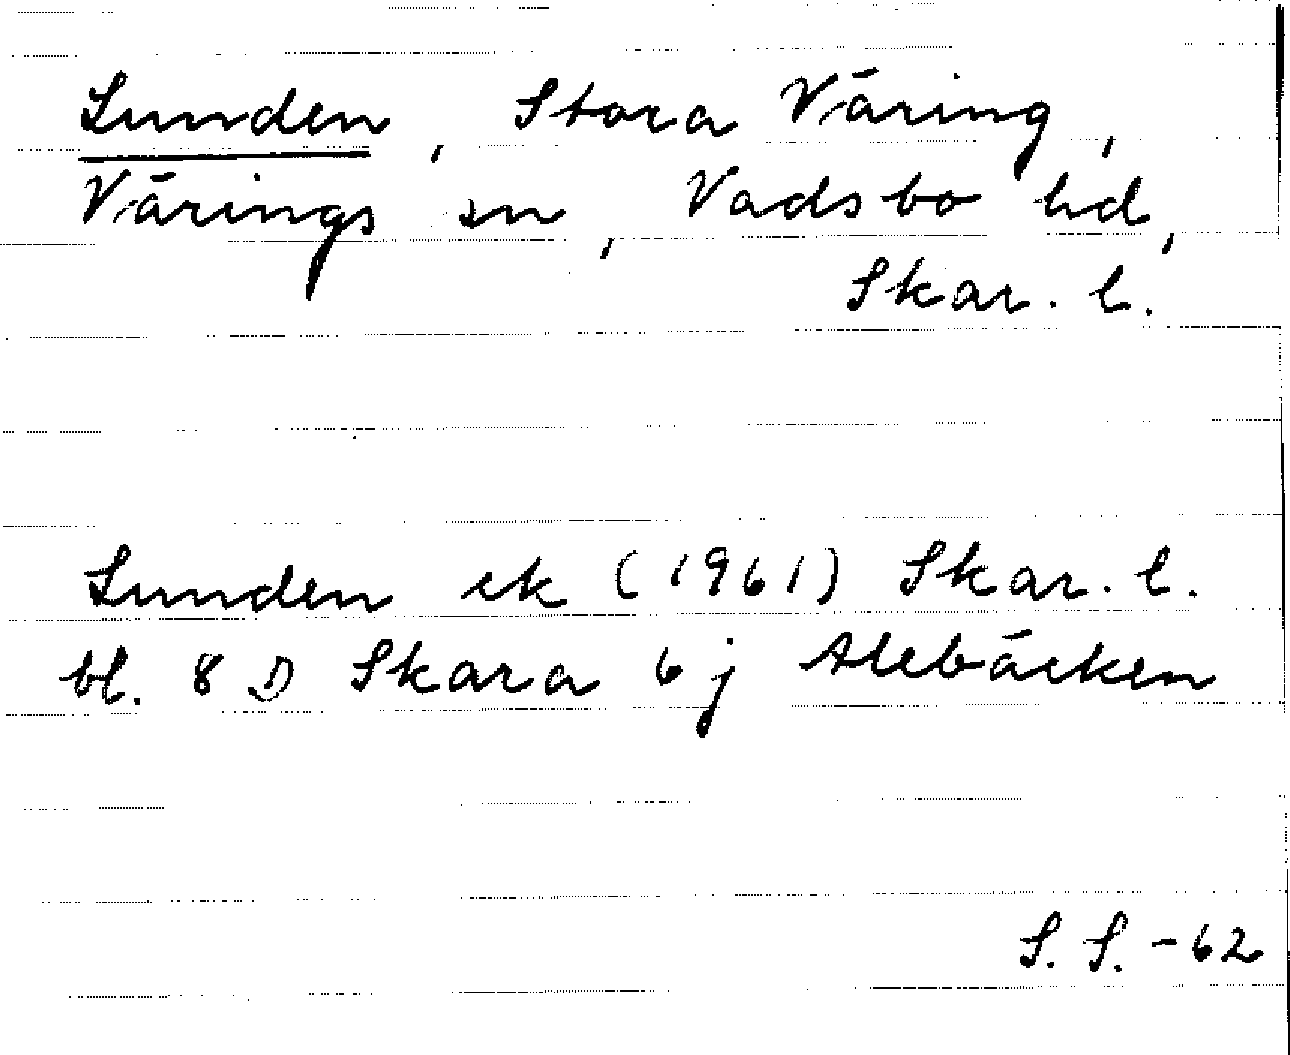 Lunden, Stora Väring,
Värings sn, Vadsbo hd,
Skar. l.
Lunden ek (1961) Skar. l.
bl. 8 D Skara 6 j Alebäcken
S. S. -62